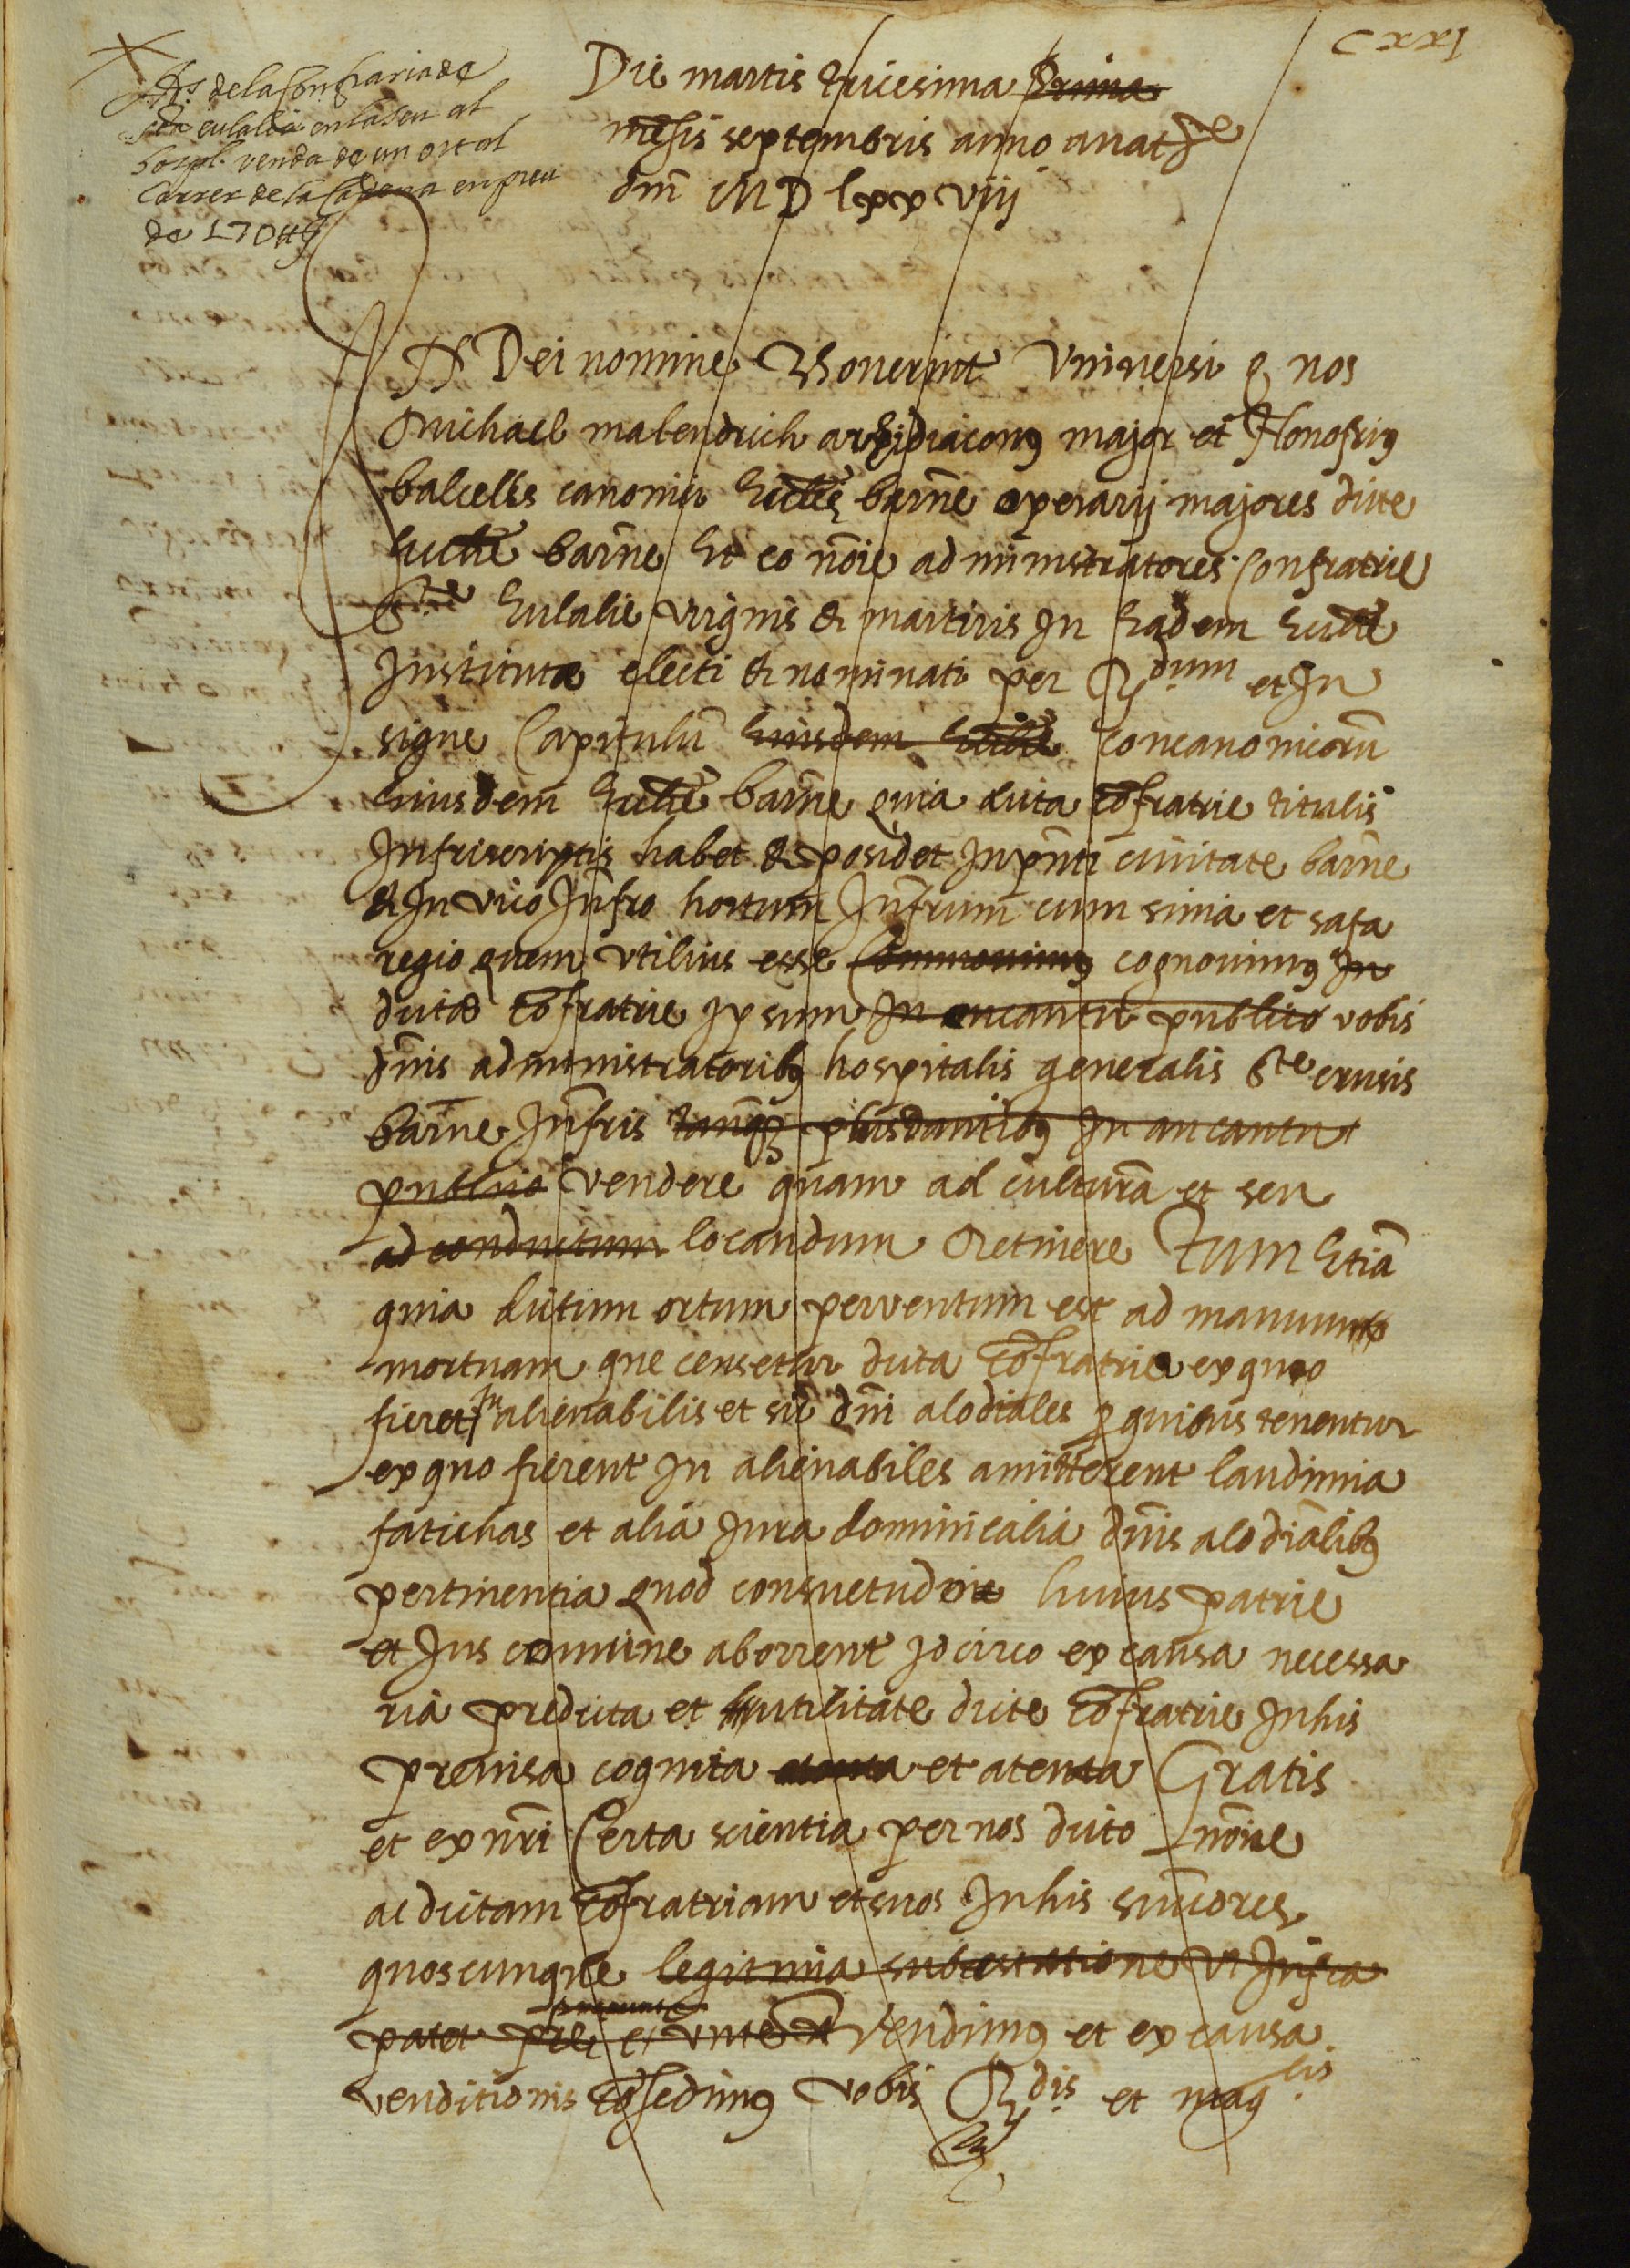 CXXI
de la Confraria de
sta eulalia en la seu al
hospl. venda de un ort al
Carrer de la Cadena en preu
de 170 ℔
Die martis tricesima prima
mēsis septembris anno a nat.te
dn̄i MDLxxviiij
IN Dei nomine Noverint Universi q nos
Michael malendrich archidiaconꝰ major et Honofriꝰ
balcells canonici Eccliē barn̄e operarij majores dicte
Eccliē barn̄e Et eo nōie administratores Confratrie
Ste Eulalie virginis & martiris In Eadem Eccliē
Institute electi & nominati per Rdum et In
signe Capitulū Eiusdem Eccliē concanonicorū
Eiusdem Eccliē barn̄e quia dicta cōfratrie titulis
Infrascriptis habet & posidet In pn̄ti civitate barn̄e
& In vico Infr̄o hortum Infr̄um cum sinia et safa
regio quem utilius esse cognovimꝰ In
dicte cōfratrie ipsum In encantu publico vobis
dn̄is administratoribꝰ hospitalis generalis Ste crusis
barn̄e Infr̄is tanq̄ plusdantibꝰ In ancantu
publico vendere quam ad culturā et seu
ad conductum locandum Retinere Tum Etiā
quia dictum ortum perventum est ad manum
mortuam que censetur dicta cōfratrie ex quo
fieret In alienabilis et sic dn̄i alodiales ꝑ quibus tenentur
ex quo fierent In alienabiles amitterent laudimia
fatichas et alia Jura dominicalia dn̄is alodialibꝰ
pertinentia quod consuetudine huius patrie
et Jus comune aborrent Idcirco ex causa necessa
ria predicta et utilitate dicte cōfratrie In his
premisa cognita et atenta Gratis
et ex nr̄i Certa scientia per nos dicto nōine
ac dictam cōfratriam et suos In his succ̄ores
quoscunque legitima subastatione ut Infra
patet vendimꝰ et ex causa
venditionis cōsedimꝰ vobis Rdis et magcis